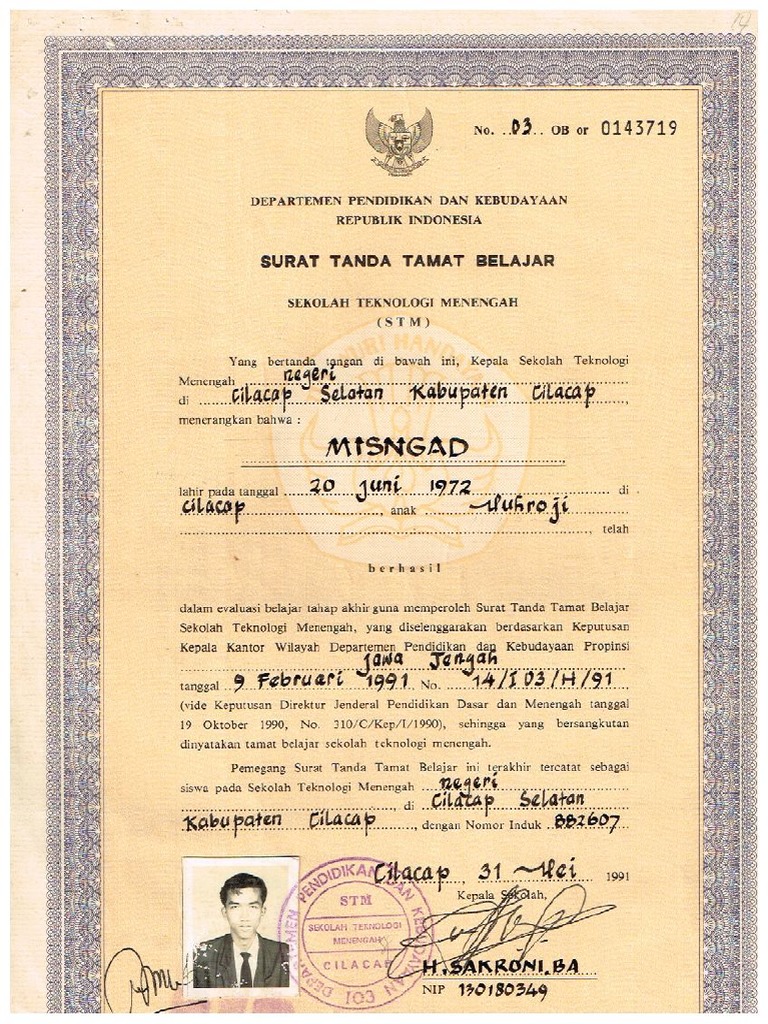 14
No. ..03.. OB or 0143719
DEPARTEMEN PENDIDIKAN DAN KEBUDAYAAN
REPUBLIK INDONESIA
SURAT TANDA TAMAT BELAJAR
SEKOLAH TEKNOLOGI MENENGAH
(STM)
Yang bertanda tangan di bawah ini, Kepala Sekolah Teknologi
Menengah negeri
di Cilacap Selatan Kabupaten Cilacap,
menerangkan bahwa :
MISNGAD
lahir pada tanggal 20 Juni 1972 di
Cilacap anak Muhroji
, telah
berhasil
dalam evaluasi belajar tahap akhir guna memperoleh Surat Tanda Tamat Belajar
Sekolah Teknologi Menengah, yang diselenggarakan berdasarkan Keputusan
Kepala Kantor Wilayah Departemen Pendidikan dan Kebudayaan Propinsi
Jawa Tengah
tanggal 9 Februari 1991 No. 14/I 03/H/91
(vide Keputusan Direktur Jenderal Pendidikan Dasar dan Menengah tanggal
19 Oktober 1990, No. 310/C/Kep/I/1990), sehingga yang bersangkutan
dinyatakan tamat belajar sekolah teknologi menengah.
Pemegang Surat Tanda Tamat Belajar ini terakhir tercatat sebagai
siswa pada Sekolah Teknologi Menengah negeri
, di Cilacap Selatan
Kabupaten Cilacap, dengan Nomor Induk 882607
Cilacap, 31 Mei 1991
Kepala Sekolah,
DEPARTEMEN PENDIDIKAN DAN KEBUDAYAAN
STM
SEKOLAH TEKNOLOGI
MENENGAH
CILACAP
I03
H. SAKRONI. BA
NIP 130180349